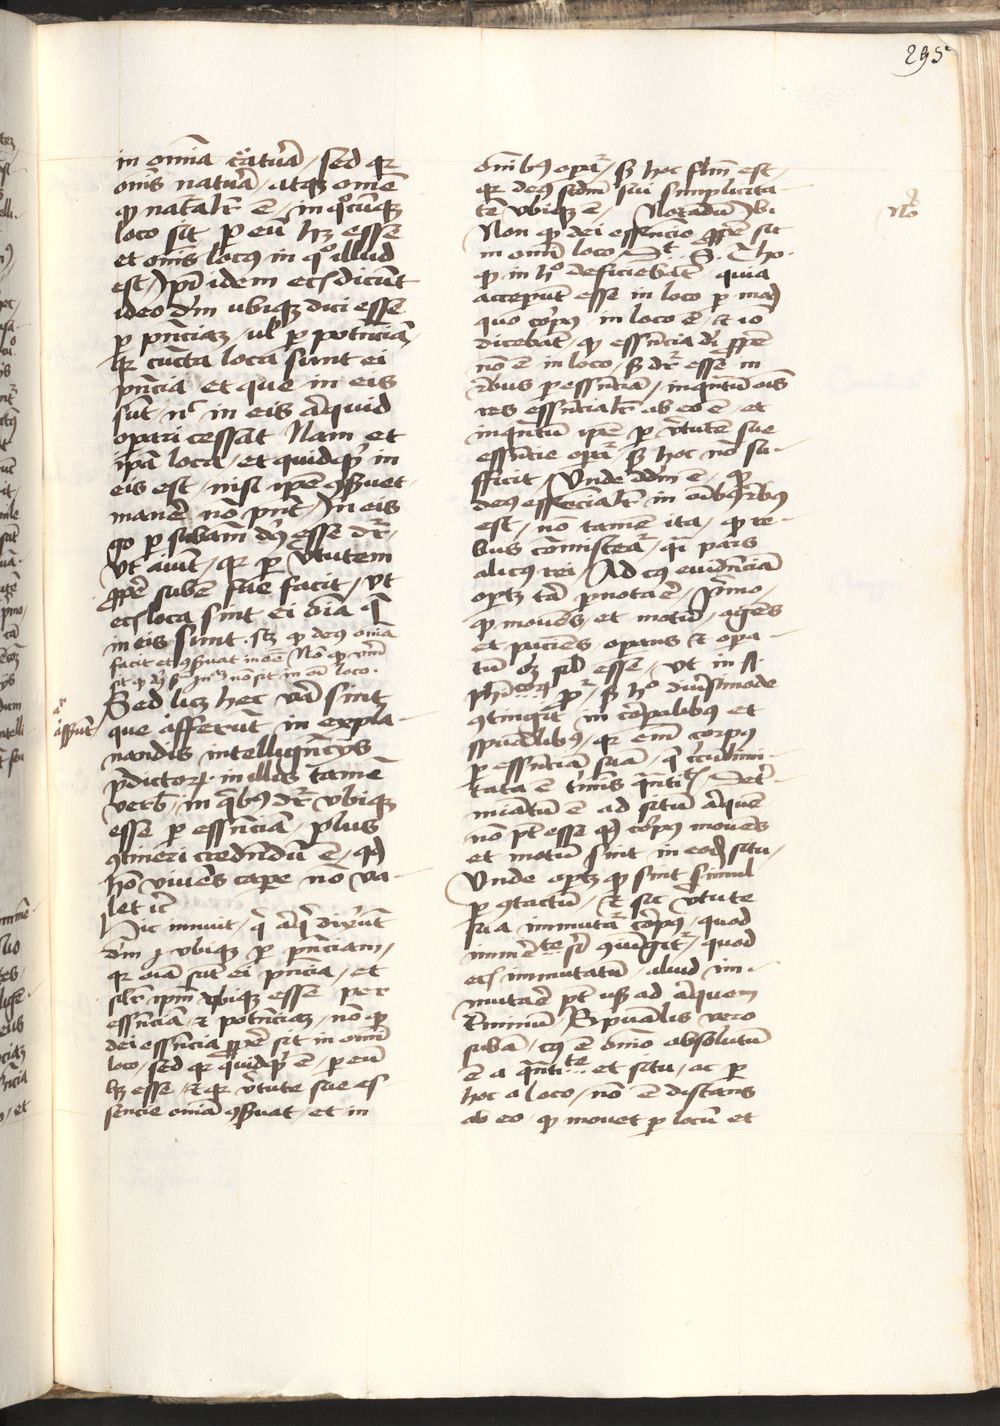 295
in omnia creatura / sed quia
omnis natura / atque omne
quod naturaliter est / in quocunque
loco sit per eum habet esse
et omnis locus in quo illud
est / Ipsi idem eciam dicunt
ideo deum ubique dici esse
per presenciam / vel per potenciam
quia cuncta loca sunt ei
presencia et que in eis
sunt nec in eis aliquid
operari cessat Nam et
ipsa loca / et quidquid in
eis est / nisi ipse conservet
manere non possunt / In eis
ergo per substanciam deus esse dicitur
Ut aiunt / quia per virtutem
proprie substancie sue facit / ut
eciam loca sint ei
in eis sunt. scilicet quod deus omnia
facit et conservat in esse Non quod
sit in omni loco.
Sed licet hec vera sint
asserunt
que afferunt in expla-
nandis intelligenciis
predictorum in illis tamen
verbis / in quibus dicitur ubique
esse per essenciam / plus
contineri credendum est / quod
homo vivens capere non va-
let
Hic innuit / quod aliqui dixerunt
deum ubique per presenciam /
quia omnia sunt ei presencia / et
similiter ipsum ubique esse per
essenciam et potenciam / non quod
dei essencia proprie sit in omni
loco / sed quia quidquid est / per eum
habet esse / et quia virtute sue es
sencie omnia conservat / et in
omnibus operatur / sed hoc falsum est /
quia deus secundum sui simplicita-
tem ubique est / Notandum ibi
Nota
Non quod dei essencia proprie sit
in omni loco Dicit S. Tho.
quod in hoc deficiebant quia
acceperunt esse in loco per modum
quo corpus in loco est / et ideo
dicebant quod essencia dei proprie
non est in loco / sed dicitur esse in
rebus per essenciam / inquantum omnis
res essencialiter ab eo est / et
inquantum ipse per virtutem sue
essencie operatur / sed hoc non su-
fficit / Unde dicendum est / quod
deus essencialiter in omnibus rebus
est / non tamen ita / quod re-
bus commisceatur / quasi pars
alicuius rei / Ad cuius evidenciam
oportet tria prenotare / Primo /
quod movens et motum / agens
et paciens / operans et opera-
tum oportet simul esse / ut in
phisicorum probatur / sed hoc diversimode
contingit in corporalibus et
spiritualibus / quia enim corpus
per essenciam suam / que circumli-
tata est terminis quantitatis / deter
minatum est ad situm aliquem
non potest esse quod corpus movens
et motum sint in eodem situ /
Unde oportet quod sint simul
per contactum / et sic virtute
sua immutat corpus / quod
immediate sibi coniungitur / quod
eciam immutatum / aliud im-
mutare potest usque ad aliquem
terminum / Spiritualis vero
substancia / cuius esse omnino absolutum
est a quantitate et situ / ac per
hoc a loco / non est distans
ab eo / quod movet per locum et